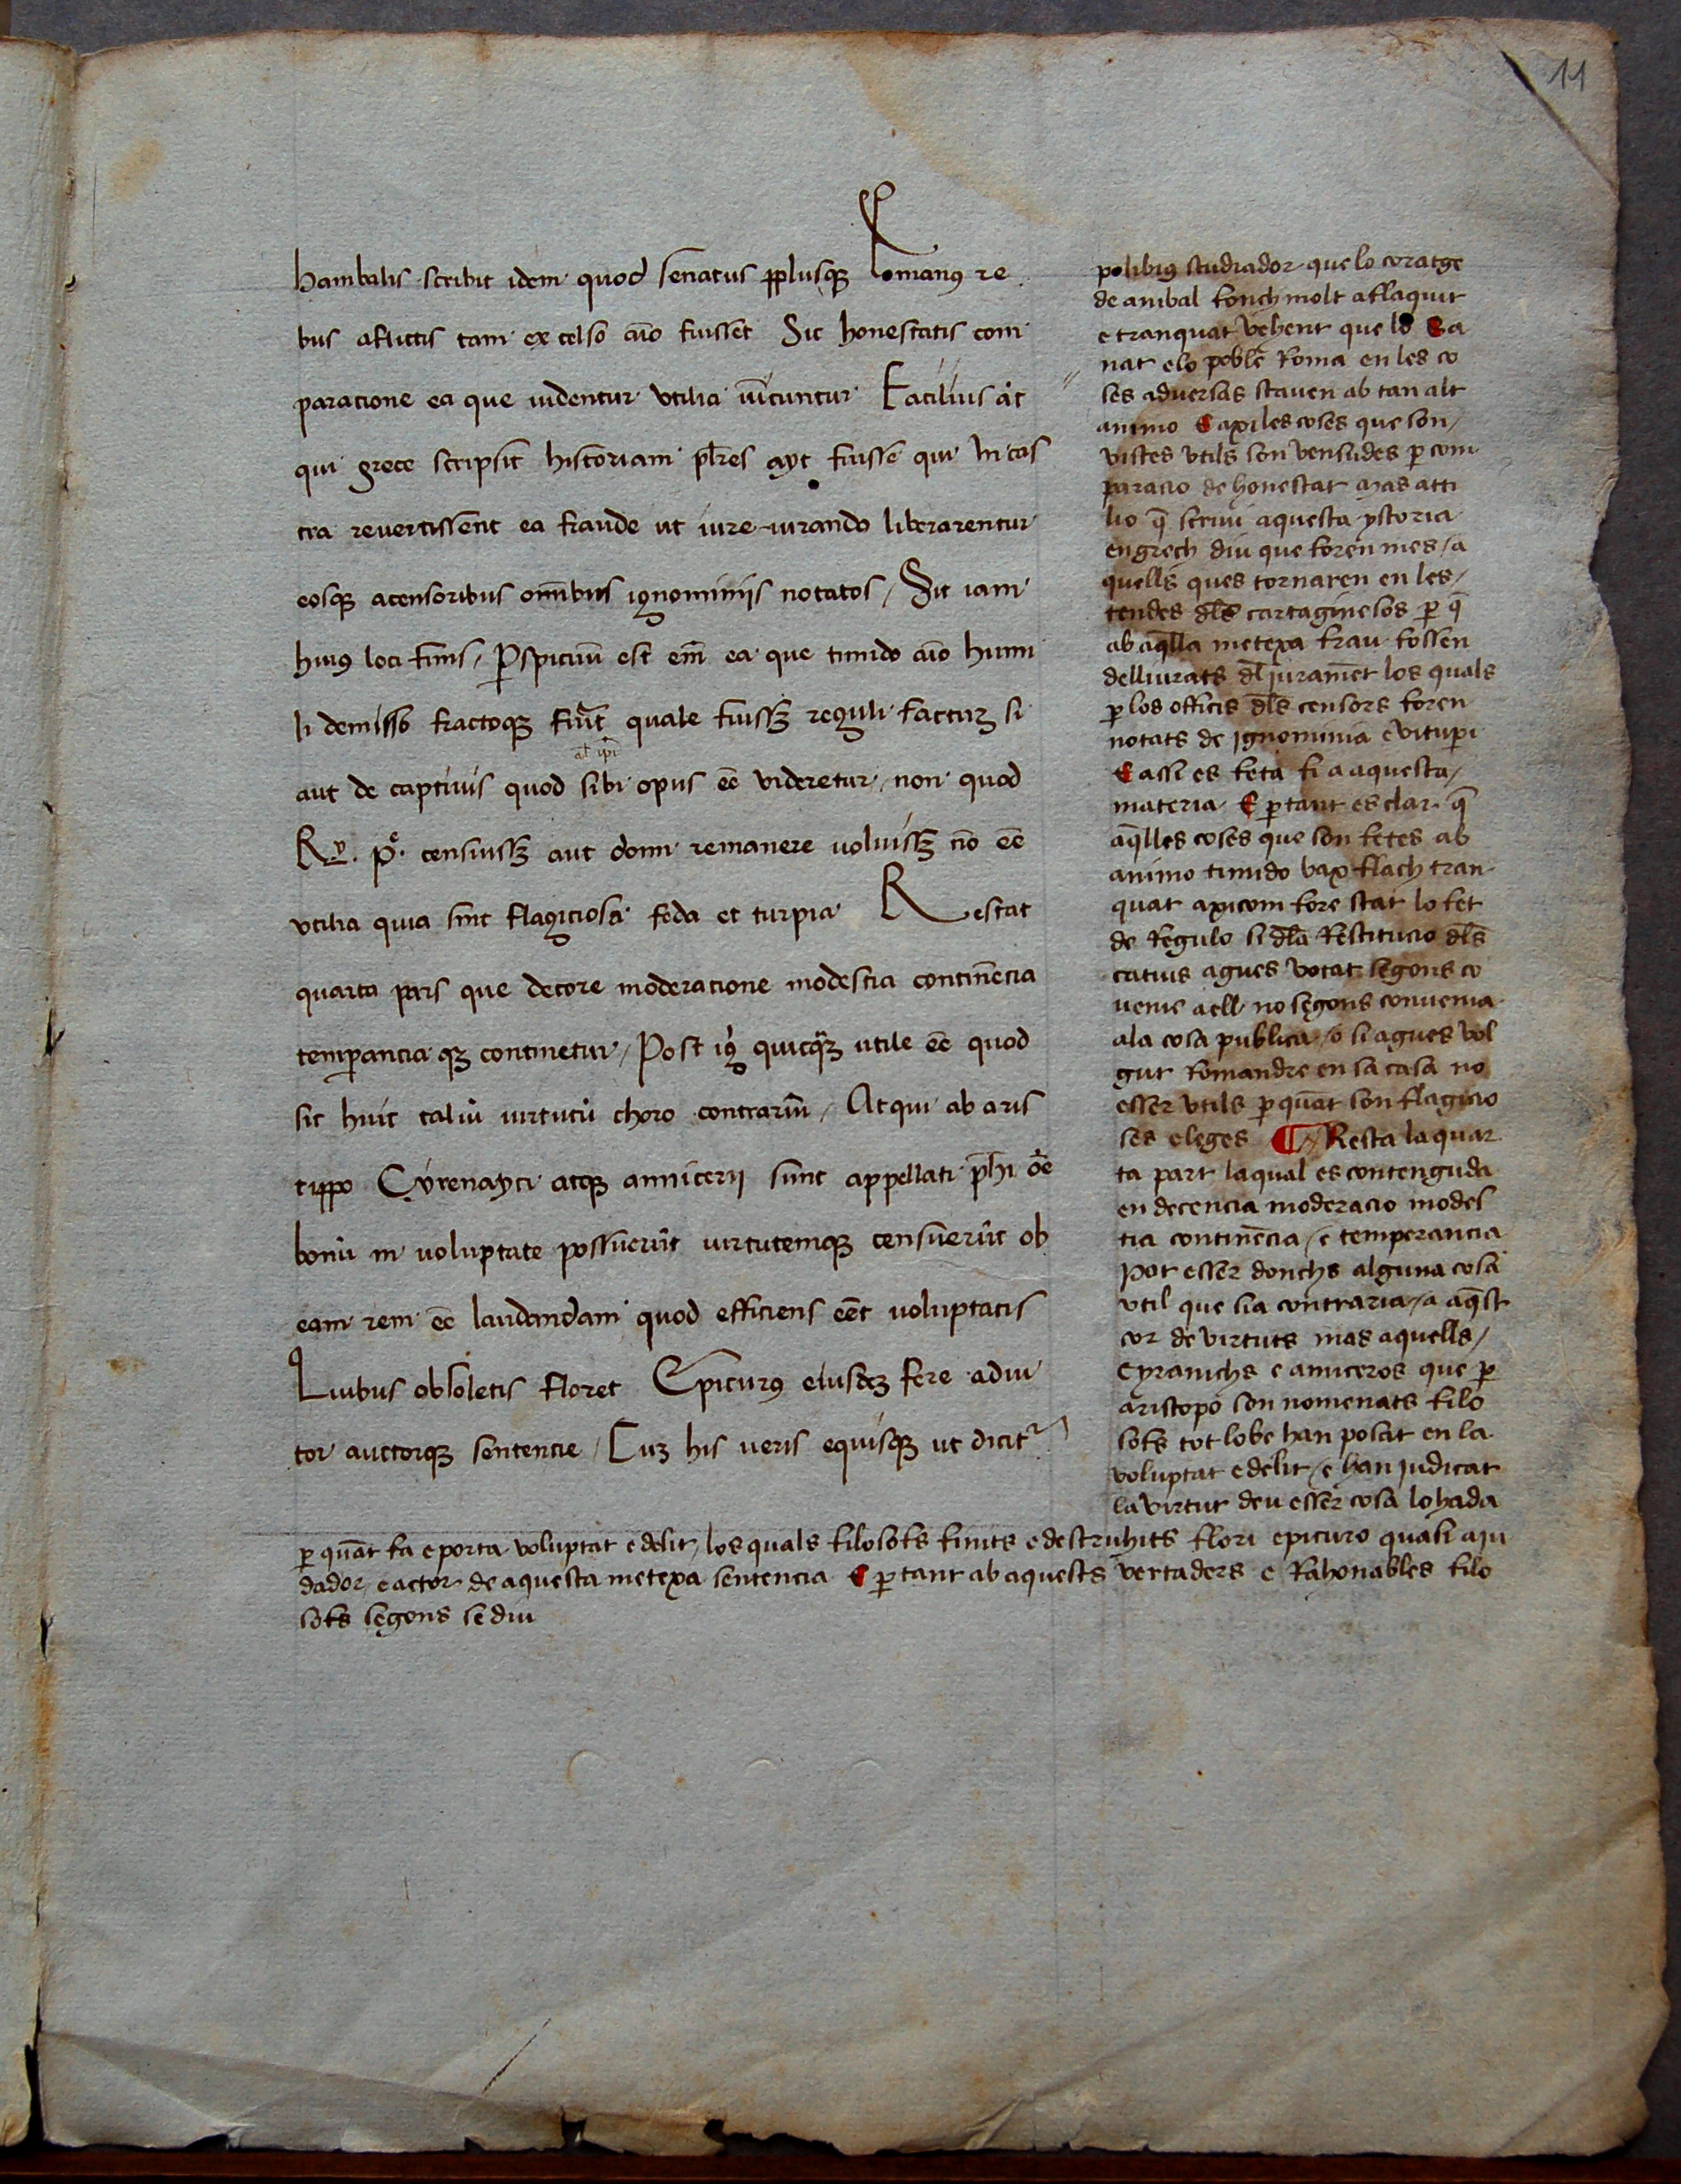 11
hanibalis scribit idem quod senatus pplusq3 Romanꝯ re
bus aflictis tam ex celso aīo fuisset Sic honestatis com
paracione ea que uidentur utilia uīcuntur Facilius at̄
qui grece scripsit historiam pl̄res ayt fuisse qui in cas
tra revertissent ea fraude ut iure iurando liberarentur
eosq3 acensoribus omībus ignominijs notatos / Sit iam
huiꝯ loci finis / Pspicuū est em̄ ea que timido aīo humi
li demisso fractoq3 fiūt quale fuiss3 reguli factū si
al̄ ip̄i
aut de captiuis quod sibi opus eē videretur non quod
R. p. censuiss3 aut domi remanere uoluiss3 nō eē
utilia quia sint flagiciosa feda et turpia Restat
quarta pars que decore moderacione modestia continēcia
temperancia q3 continetur / Post igr̄ quicq̄3 utile eē quod
sit huic taliū uirtutū choro contrariū / Atqui ab aris
tippo Cyrenayci atq3 annicerij sunt appellati ph̄i oē
bonū in uoluptate possuerūt uirtutemq3 censuerūt ob
eam rem eē laudandam quod efficiens eēt uoluptatis
Quibus obsoletis floret Epicurꝯ eiusde3 fere adiu
tor auctorq3 sentencie / Cu3 his ueris equisq3 ut dicit᷑
polibiꝯ studiador que lo coratge
de anibal fonch molt aflaquit
e tranquat vehent que lo Sa
nat e lo poble Roma en les co
ses adversas staven ab tan alt
animo E axi les coses que son /
vistes utils son vensudes ꝑ com
paracio de honestat mas atti
lio q̄ scriui aquesta ystoria
en grech diu que foren mes / a
quells ques tornaren en les /
tendes dl̄s cartaginesos ꝑ q̄
ab aq̄lla metexa frau fossen
delliurats dl̄ juramēt los quals
ꝑ los officis dl̄s censors foren
notats de ignominia e vituperi
E assi es feta fi a aquesta /
materia E ꝑ tant es clar q̄
aq̄lles coses que son fetes ab
animo timido bax flach tran
quat axi com fore stat lo fet
de Regulo si dl̄a Restitucio dl̄s
catius agues votat segons co
venie a ell no segons convenia
ala cosa publica / o si agues vol
gut Romandre en sa casa no
esser utils ꝑ quāt son flagicio
ses e leges ¶ Resta la quar
ta part la qual es contenguda
en decencia moderacio modes
tia continēcia / e temperancia
Pot esser donchs alguna cosa
util que sia contraria / a aq̄st
cor de virtuts mas aquells /
Cyranichs e amiceros que ꝑ
aristopo son nomenats filo
sofs tot lo be han posat en la
voluptat e delit / e han judicat
la virtut deu esser cosa lohada
ꝑ quāt fa e porta voluptat e delit / los quals filosofs finits e destruhits flori epicuro quasi aju
dador / e actor de aquesta metexa sentencia E ꝑ tant ab aquests vertaders e Rahonables filo
sofs segons se diu